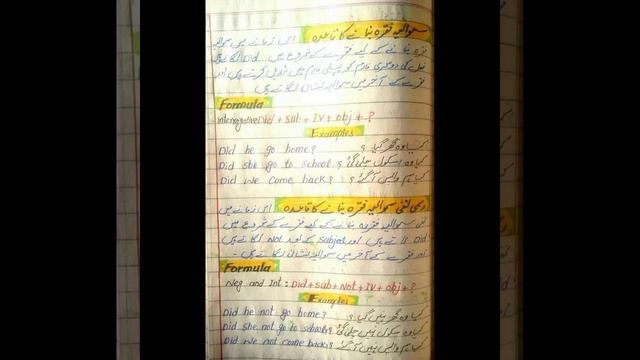 سوالیہ فقرہ بنانے کا قاعدہ : اس زمانے میں سوالیہ
فقرہ بنانے کے لیے فقرے کے شروع میں Did لگاتے ہیں
فعل کی دوسری فارم کو پہلی فارم میں تبدیل کرتے ہیں اور
فقرے کے آخر میں سوالیہ نشان لگاتے ہیں
Formula
Interrogative Did + sub + IV + obj + ?
Examples
Did he go home? کیا وہ گھر گیا ؟
Did she go to school? کیا وہ اسکول چلی گئی ؟
Did we come back? کیا ہم واپس آ گئے ؟
نفی سوالیہ فقرہ بنانے کا قاعدہ : اس زمانے میں
نفی سوالیہ فقرہ بنانے کے لیے فقرے کے شروع میں
Did لاتے ہیں اور subject کے بعد Not لگاتے ہیں
اور فقرے کے آخر میں سوالیہ نشان لگاتے ہیں -
Formula
Neg and Int : Did + sub + Not + IV + obj + ?
Examples
Did he not go home? کیا وہ گھر نہیں گیا ؟
Did she not go to school? کیا وہ سکول نہیں چلی گئی ؟
Did we not come back? کیا ہم واپس نہیں آ گئے ؟